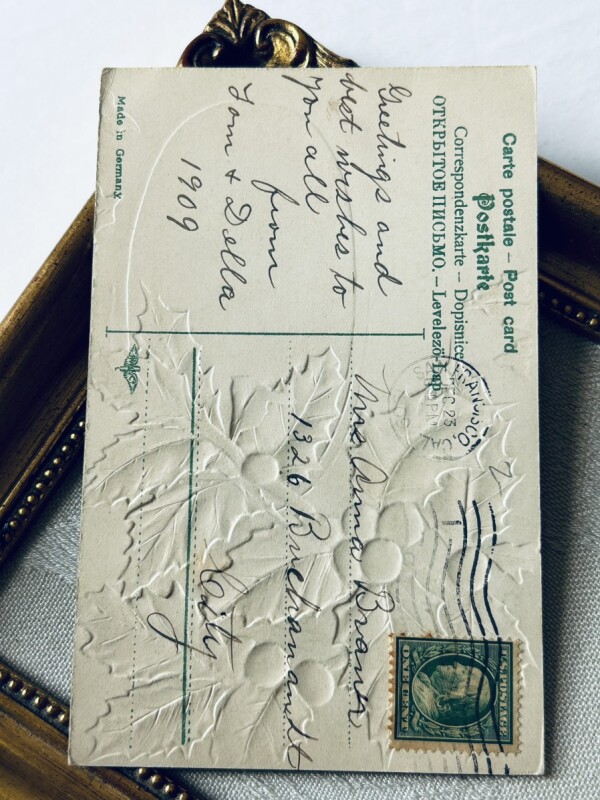 Carte postale – Post card
Postkarte
Correspondenzkarte – Dopisnice
ОТКРЫТОЕ ПИСЬМО. – Levelező-Lap.
Greetings and
best wishes to
you all
from
Tom & Della
1909
Made in Germany
DEC 23
Mrs Anna Braner
1326 Buchanan St
City
U.S. POSTAGE
ONE CENT